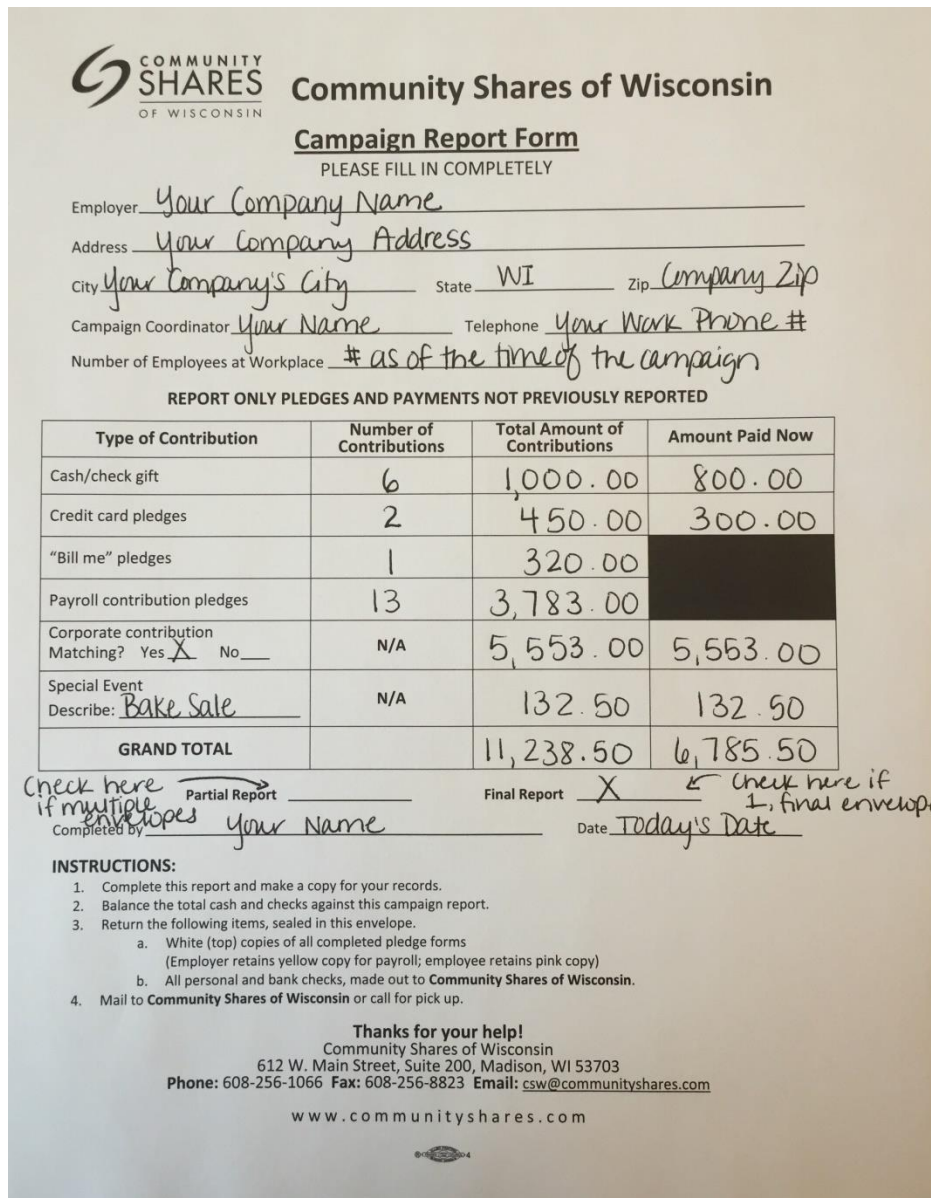 COMMUNITY
SHARES
OF WISCONSIN
Community Shares of Wisconsin
Campaign Report Form
PLEASE FILL IN COMPLETELY
Employer Your Company Name
Address Your Company Address
City Your Company's City State WI Zip Company Zip
Campaign Coordinator Your Name Telephone Your Work Phone #
Number of Employees at Workplace # as of the time of the campaign
REPORT ONLY PLEDGES AND PAYMENTS NOT PREVIOUSLY REPORTED
Type of Contribution Number of Contributions Total Amount of Contributions Amount Paid Now
Cash/check gift 6 1,000.00 800.00
Credit card pledges 2 450.00 300.00
"Bill me" pledges 1 320.00
Payroll contribution pledges 13 3,783.00
Corporate contribution
Matching? Yes X No N/A 5,553.00 5,553.00
Special Event
Describe: Bake Sale N/A 132.50 132.50
GRAND TOTAL 11,238.50 6,785.50
Check here if multiple envelopes Partial Report Final Report X Check here if 1, final envelope
Completed by Your Name Date Today's Date
INSTRUCTIONS:
1. Complete this report and make a copy for your records.
2. Balance the total cash and checks against this campaign report.
3. Return the following items, sealed in this envelope.
a. White (top) copies of all completed pledge forms
(Employer retains yellow copy for payroll; employee retains pink copy)
b. All personal and bank checks, made out to Community Shares of Wisconsin.
4. Mail to Community Shares of Wisconsin or call for pick up.
Thanks for your help!
Community Shares of Wisconsin
612 W. Main Street, Suite 200, Madison, WI 53703
Phone: 608-256-1066 Fax: 608-256-8823 Email: csw@communityshares.com
www.communityshares.com